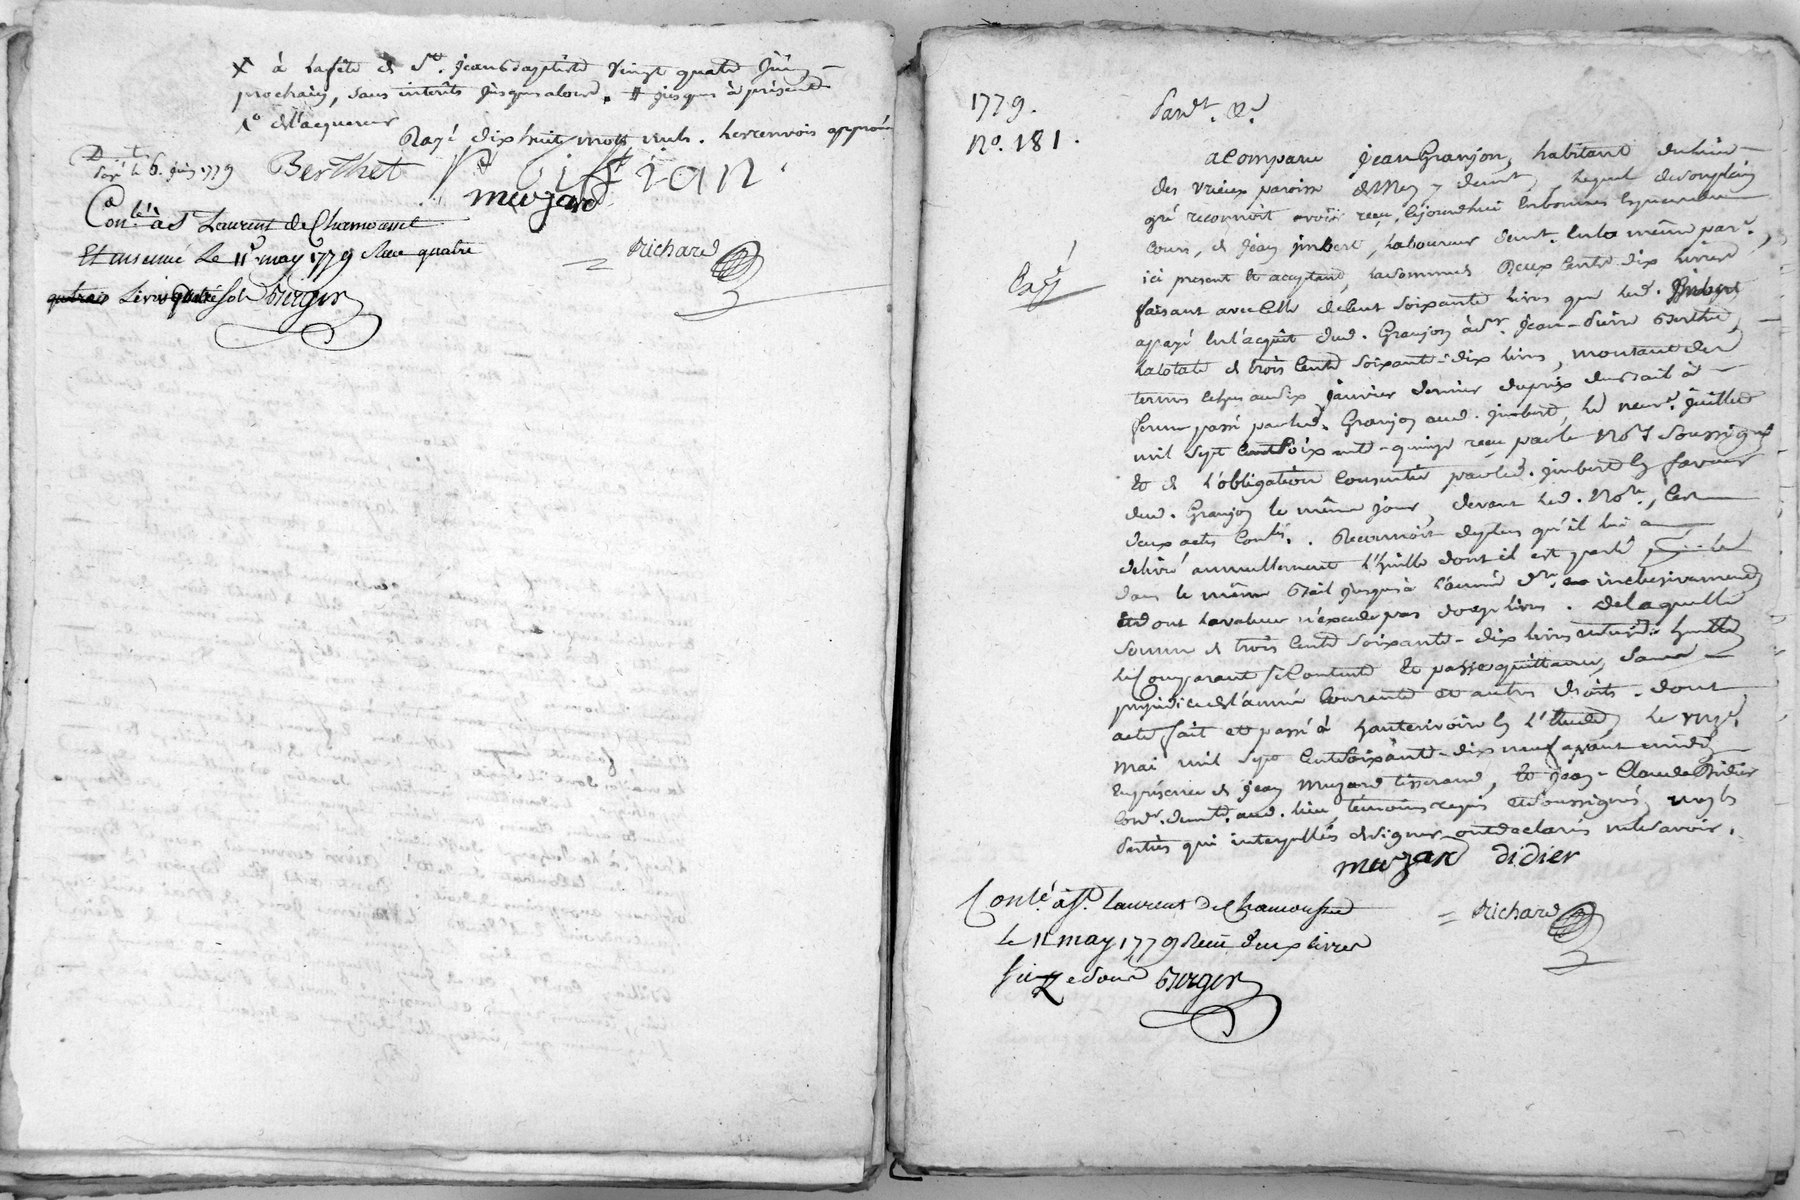 X à la fête de St. Jean Baptiste vingt quatre Juin
prochain, sans interêts jusqu'alors. # jusques à présent
de l'acquereur
Rayé dix huit mots nuls. Les renvois approu
le 6. juin 1779 Berthet
muzard
Conlé. à St Laurent de Chamousset
Et insinué Le 11 may 1779 Reçu quatre
livres sols Berger
Richard
1779.
No. 181.
Pardt. &c.
Exp
a Comparu Jean Granjon, habitant du lieu
des vrieux paroisse de demt, lequel de son plein
gré reconnoit avoir reçu, cejourd'hui en bonnes especes au
cours, de Jean Jmbert, laboureur demt. en la même par.
ici present et acceptant, la somme de Deux Cents dix livres
faisant avec celle de Cent soixante livres que led. Jmbert
a payé en l'acquit dud. Granjon à sr. Jean-Pierre Berthet,
la totale de trois Cents soixante-dix livres, montant des
termes échus au dix janvier dernier du prix du Bail à
ferme passé par led. Granjon aud. Jmbert, le neuf. juillet
mil sept Cent soixante-quinze reçu par le Nore. soussigné
et de l'obligation consentie par led. jmbert en faveur
dud. Granjon le même jour, devant led. Nore., Les
deux actes Conlés. Reconnoit de plus qu'il lui a
délivré annuellement l'huille dont il est parlé
dans le même Bail jusqu'à l'année dre. inclusivement
et dont la valeur n'excede pas douze livres. De laquelle
somme de trois Cents soixante-dix livres et huille
le Comparant se Contente et passe quittance, sans
préjudice de l'année Courante et autres droits. dont
acte, fait et passé à hauterivoire en l'Etude, le onze.
mai mil sept Cent soixante-dix neuf avant midi
en présence de Jean Muzard tisserand, et Jean-Claude Didier
Cordr. demts. aud. lieu, témoins requis et soussignés, non les
Parties qui interpellées de signer ont declaré ne le savoir.
muzard didier
Conlé. à St. Laurent de Chamousset
le 11 may 1779 Reçu deux livres
seize sous Berger
Richard